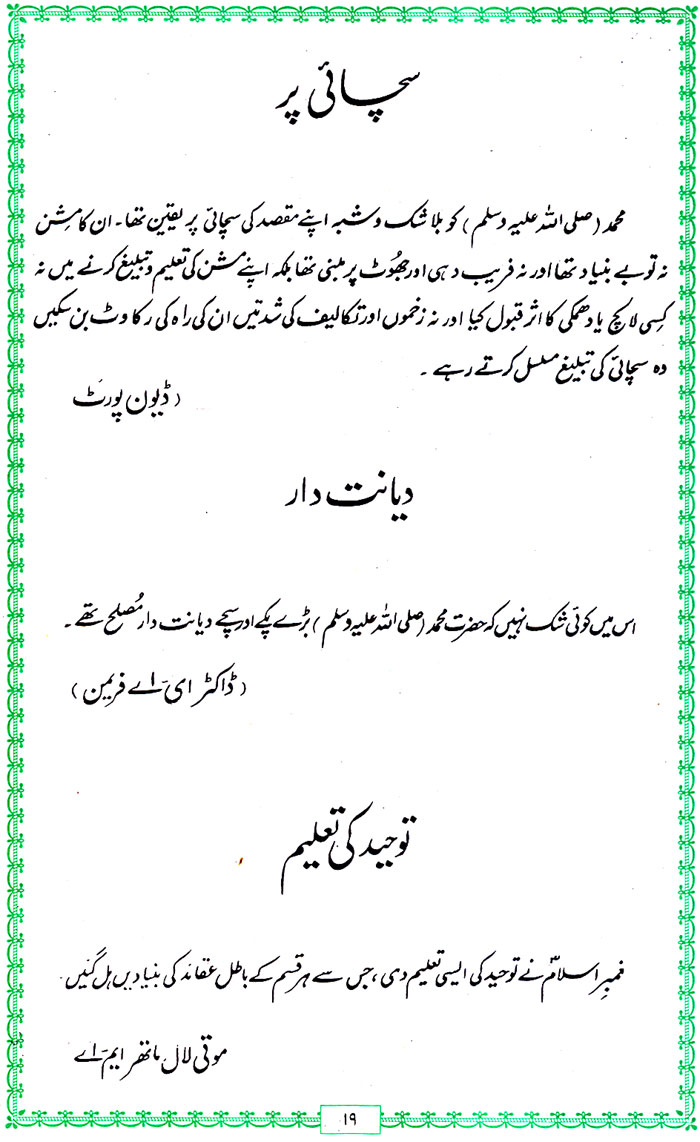 سچائی پر
محمد (صلی اللہ علیہ وسلم) کو بلا شک و شبہ اپنے مقصد کی سچائی پر یقین تھا۔ ان کا مشن
نہ تو بے بنیاد تھا اور نہ فریب دہی اور جھُوٹ پر مبنی تھا بلکہ اپنے مشن کی تعلیم و تبلیغ کرنے میں نہ
کسی لالچ یا دھمکی کا اثر قبول کیا اور نہ زخموں اور تکالیف کی شدتیں ان کی راہ کی رکاوٹ بن سکیں
وہ سچائی کی تبلیغ مسلسل کرتے رہے ۔
(ڈیون پورٹ
دیانت دار
اس میں کوئی شک نہیں کہ حضرت محمد (صلی اللہ علیہ وسلم) بڑے پکے اور سچے دیانت دار مُصلح تھے ۔
(ڈاکٹر ای ۔ اے فریمین)
توحید کی تعلیم
غمبرِ اسلامؐ نے توحید کی ایسی تعلیم دی ، جس سے ہر قسم کے باطل عقائد کی بنیادیں ہل گئیں
موتی لال ماتھر ایم ۔ اے
۱۹